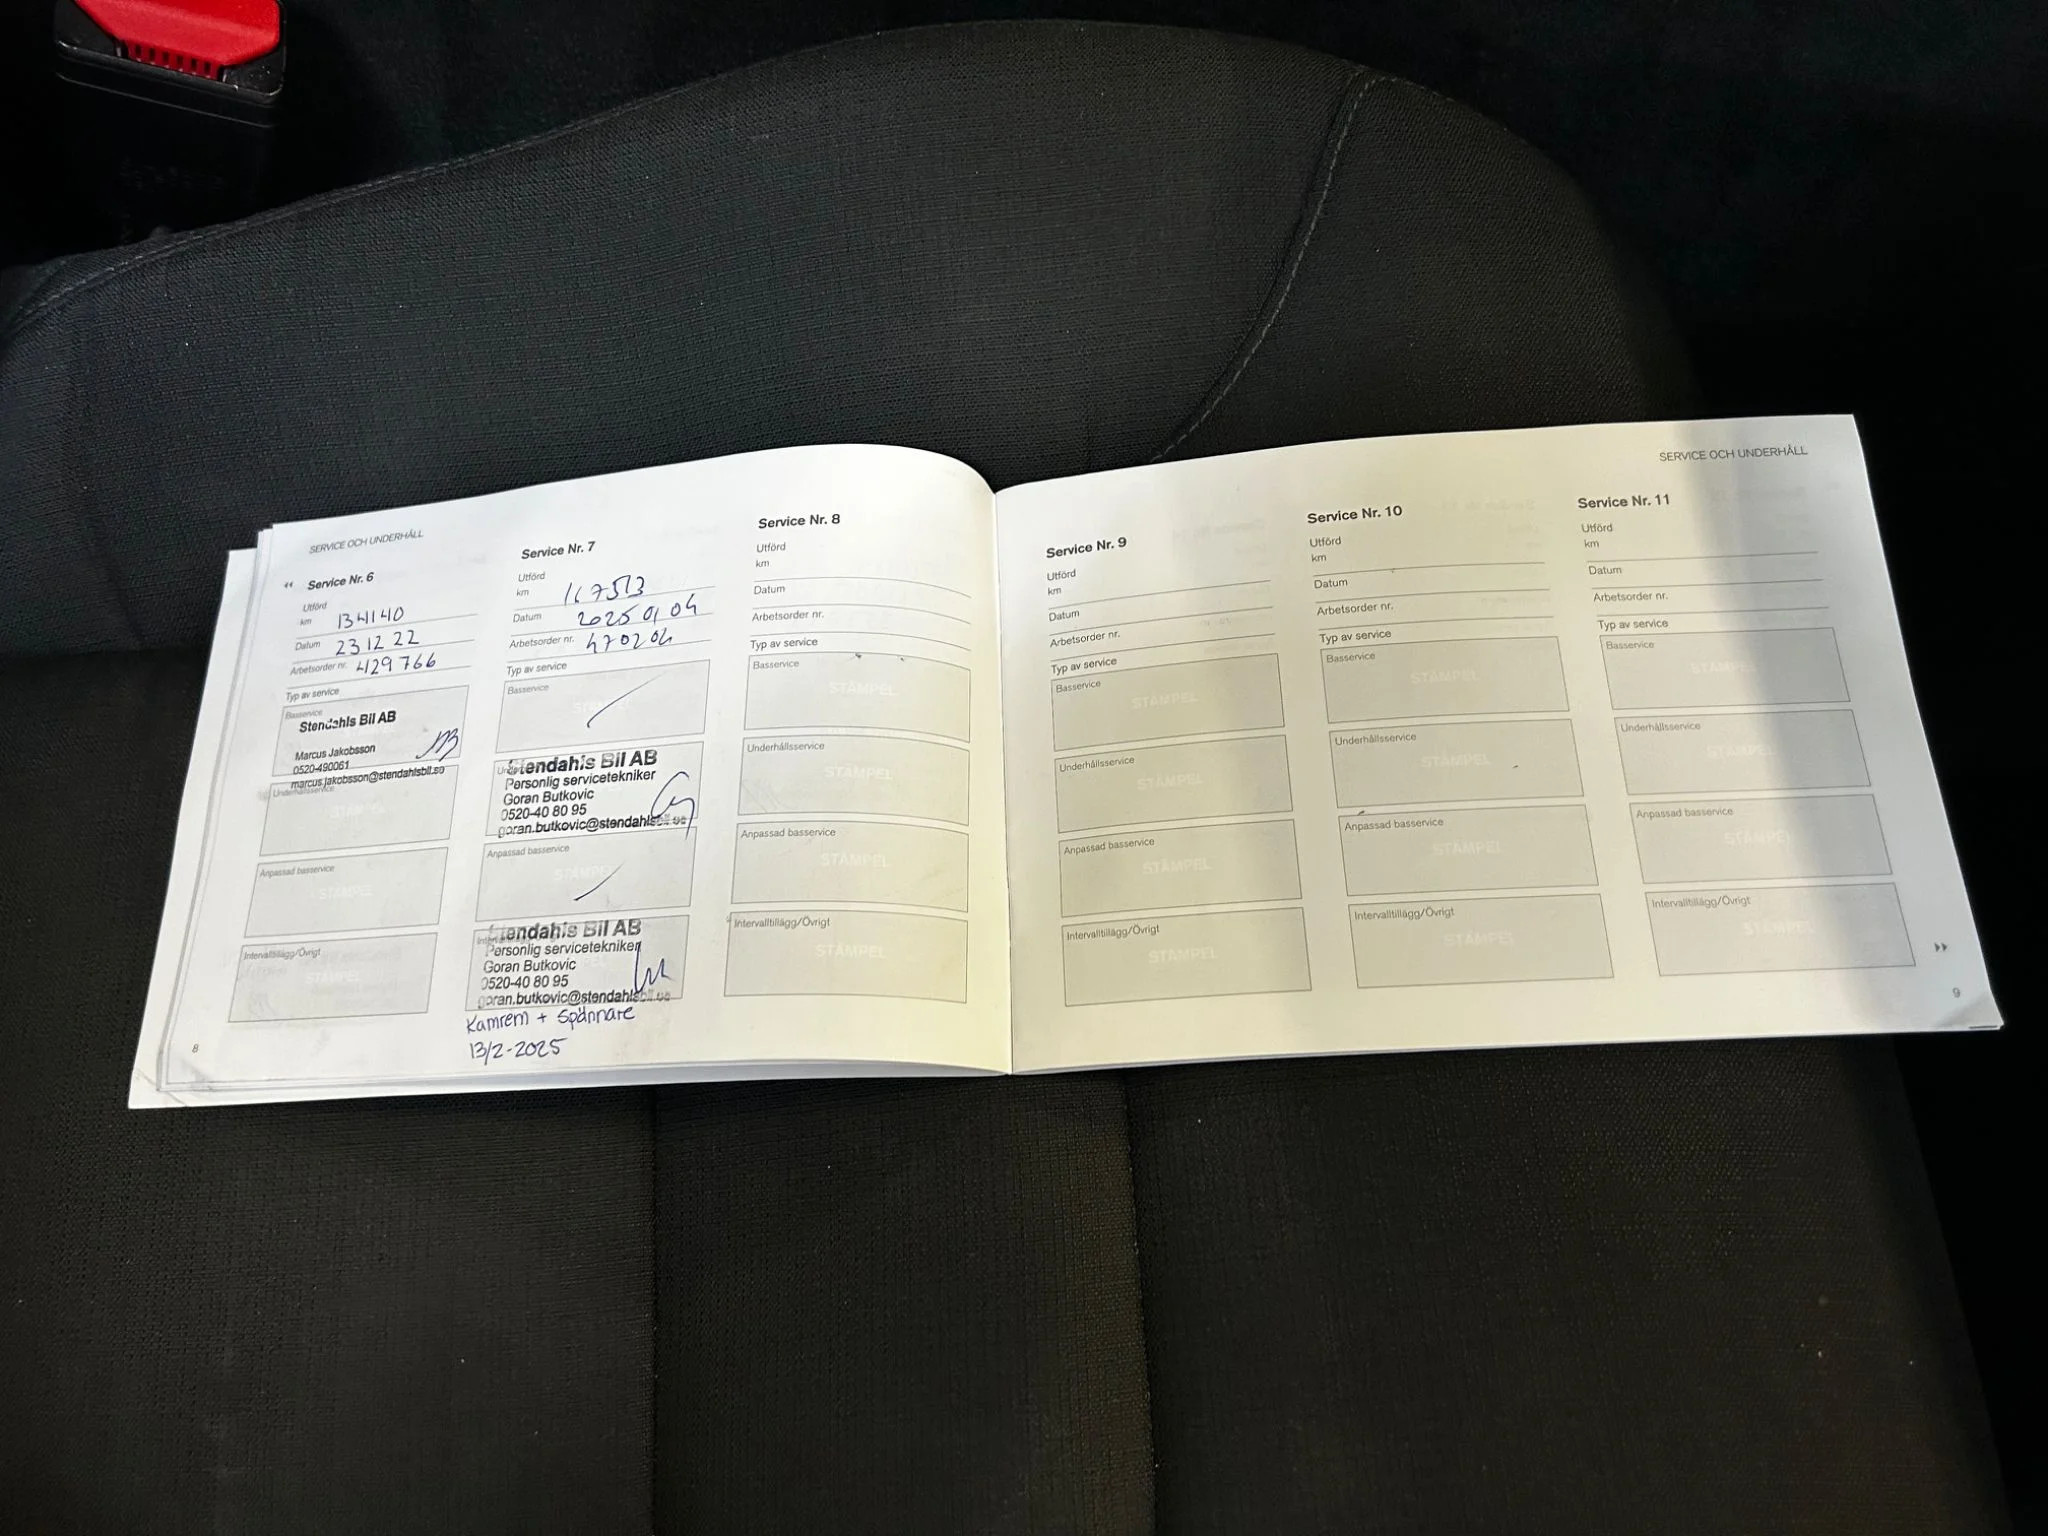 SERVICE OCH UNDERHÅLL
Service Nr. 6
Utförd
km 134140
Datum 23 12 22
Arbetsorder nr. 429 766
Typ av service
Basservice
Stendahls Bil AB
Marcus Jakobsson
0520-490061
marcus.jakobsson@stendahlsbil.se
Underhållsservice
STÄMPEL
Anpassad basservice
STÄMPEL
Intervalltillägg/Övrigt
STÄMPEL
8
Service Nr. 7
Utförd
km 167513
Datum 2025 01 04
Arbetsorder nr. 470204
Typ av service
Basservice
Stendahls Bil AB
Personlig servicetekniker
Goran Butkovic
0520-40 80 95
goran.butkovic@stendahlsbil.se
Anpassad basservice
STÄMPEL
Stendahls Bil AB
Personlig servicetekniker
Goran Butkovic
0520-40 80 95
goran.butkovic@stendahlsbil.se
Kamrem + Spännare
13/2-2025
Service Nr. 8
Utförd
km
Datum
Arbetsorder nr.
Typ av service
Basservice
STÄMPEL
Underhållsservice
STÄMPEL
Anpassad basservice
STÄMPEL
Intervalltillägg/Övrigt
STÄMPEL
SERVICE OCH UNDERHÅLL
Service Nr. 9
Utförd
km
Datum
Arbetsorder nr.
Typ av service
Basservice
STÄMPEL
Underhållsservice
STÄMPEL
Anpassad basservice
STÄMPEL
Intervalltillägg/Övrigt
STÄMPEL
Service Nr. 10
Utförd
km
Datum
Arbetsorder nr.
Typ av service
Basservice
STÄMPEL
Underhållsservice
STÄMPEL
Anpassad basservice
STÄMPEL
Intervalltillägg/Övrigt
STÄMPEL
Service Nr. 11
Utförd
km
Datum
Arbetsorder nr.
Typ av service
Basservice
STÄMPEL
Underhållsservice
STÄMPEL
Anpassad basservice
STÄMPEL
Intervalltillägg/Övrigt
STÄMPEL
9